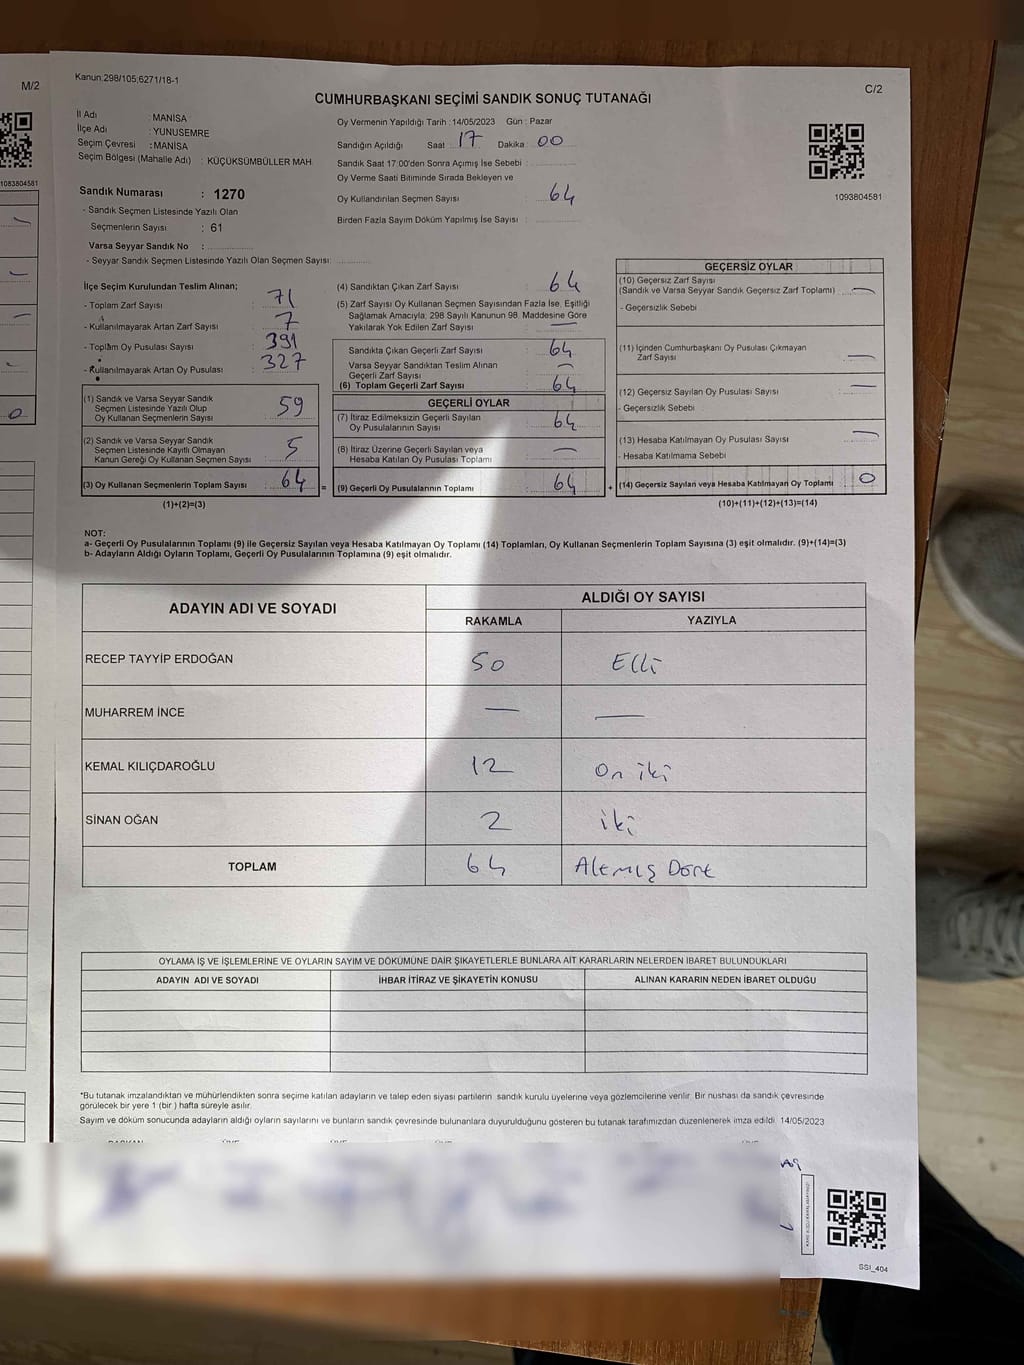 M/2
1083804581
0
Kanun:298/105;6271/18-1
C/2
CUMHURBAŞKANI SEÇİMİ SANDIK SONUÇ TUTANAĞI
İl Adı : MANİSA
İlçe Adı : YUNUSEMRE
Seçim Çevresi : MANİSA
Seçim Bölgesi (Mahalle Adı) : KÜÇÜKSÜMBÜLLER MAH
Sandık Numarası : 1270
- Sandık Seçmen Listesinde Yazılı Olan
Seçmenlerin Sayısı : 61
Varsa Seyyar Sandık No :
- Seyyar Sandık Seçmen Listesinde Yazılı Olan Seçmen Sayısı:
Oy Vermenin Yapıldığı Tarih : 14/05/2023 Gün : Pazar
Sandığın Açıldığı Saat 17 Dakika 00
Sandık Saat 17:00'den Sonra Açımış İse Sebebi :
Oy Verme Saati Bitiminde Sırada Bekleyen ve
Oy Kullandırılan Seçmen Sayısı : 64
Birden Fazla Sayım Döküm Yapılmış İse Sayısı :
1093804581
İlçe Seçim Kurulundan Teslim Alınan;
- Toplam Zarf Sayısı : 71
- Kullanılmayarak Artan Zarf Sayısı : 7
- Toplam Oy Pusulası Sayısı : 391
- Kullanılmayarak Artan Oy Pusulası : 327
(1) Sandık ve Varsa Seyyar Sandık
Seçmen Listesinde Yazılı Olup
Oy Kullanan Seçmenlerin Sayısı : 59
(2) Sandık ve Varsa Seyyar Sandık
Seçmen Listesinde Kayıtlı Olmayan
Kanun Gereği Oy Kullanan Seçmen Sayısı : 5
(3) Oy Kullanan Seçmenlerin Toplam Sayısı : 64 =
(1)+(2)=(3)
(4) Sandıktan Çıkan Zarf Sayısı : 64
(5) Zarf Sayısı Oy Kullanan Seçmen Sayısından Fazla İse, Eşitliği
Sağlamak Amacıyla; 298 Sayılı Kanunun 98. Maddesine Göre
Yakılarak Yok Edilen Zarf Sayısı : —
Sandıkta Çıkan Geçerli Zarf Sayısı : 64
Varsa Seyyar Sandıktan Teslim Alınan
Geçerli Zarf Sayısı : —
(6) Toplam Geçerli Zarf Sayısı : 64
GEÇERLİ OYLAR
(7) İtiraz Edilmeksizin Geçerli Sayılan
Oy Pusulalarının Sayısı : 64
(8) İtiraz Üzerine Geçerli Sayılan veya
Hesaba Katılan Oy Pusulası Toplamı : —
(9) Geçerli Oy Pusulalarının Toplamı : 64 +
GEÇERSİZ OYLAR
(10) Geçersiz Zarf Sayısı
(Sandık ve Varsa Seyyar Sandık Geçersiz Zarf Toplamı) —
- Geçersizlik Sebebi
(11) İçinden Cumhurbaşkanı Oy Pusulası Çıkmayan
Zarf Sayısı —
(12) Geçersiz Sayılan Oy Pusulası Sayısı —
- Geçersizlik Sebebi
(13) Hesaba Katılmayan Oy Pusulası Sayısı —
- Hesaba Katılmama Sebebi
(14) Geçersiz Sayılan veya Hesaba Katılmayan Oy Toplamı : 0
(10)+(11)+(12)+(13)=(14)
NOT:
a- Geçerli Oy Pusulalarının Toplamı (9) ile Geçersiz Sayılan veya Hesaba Katılmayan Oy Toplamı (14) Toplamları, Oy Kullanan Seçmenlerin Toplam Sayısına (3) eşit olmalıdır. (9)+(14)=(3)
b- Adayların Aldığı Oyların Toplamı, Geçerli Oy Pusulalarının Toplamına (9) eşit olmalıdır.
ADAYIN ADI VE SOYADI ALDIĞI OY SAYISI
RAKAMLA YAZIYLA
RECEP TAYYİP ERDOĞAN 50 Elli
MUHARREM İNCE — —
KEMAL KILIÇDAROĞLU 12 On iki
SİNAN OĞAN 2 iki
TOPLAM 64 Altmış Dört
OYLAMA İŞ VE İŞLEMLERİNE VE OYLARIN SAYIM VE DÖKÜMÜNE DAİR ŞİKAYETLERLE BUNLARA AİT KARARLARIN NELERDEN İBARET BULUNDUKLARI
ADAYIN ADI VE SOYADI İHBAR İTİRAZ VE ŞİKAYETİN KONUSU ALINAN KARARIN NEDEN İBARET OLDUĞU
*Bu tutanak imzalandıktan ve mühürlendikten sonra seçime katılan adayların ve talep eden siyasi partilerin sandık kurulu üyelerine veya gözlemcilerine verilir. Bir nushası da sandık çevresinde
görülecek bir yere 1 (bir ) hafta süreyle asılır.
Sayım ve döküm sonucunda adayların aldığı oyların sayılarını ve bunların sandık çevresinde bulunanlara duyurulduğunu gösteren bu tutanak tarafımızdan düzenlenerek imza edildi. 14/05/2023
SSI_404